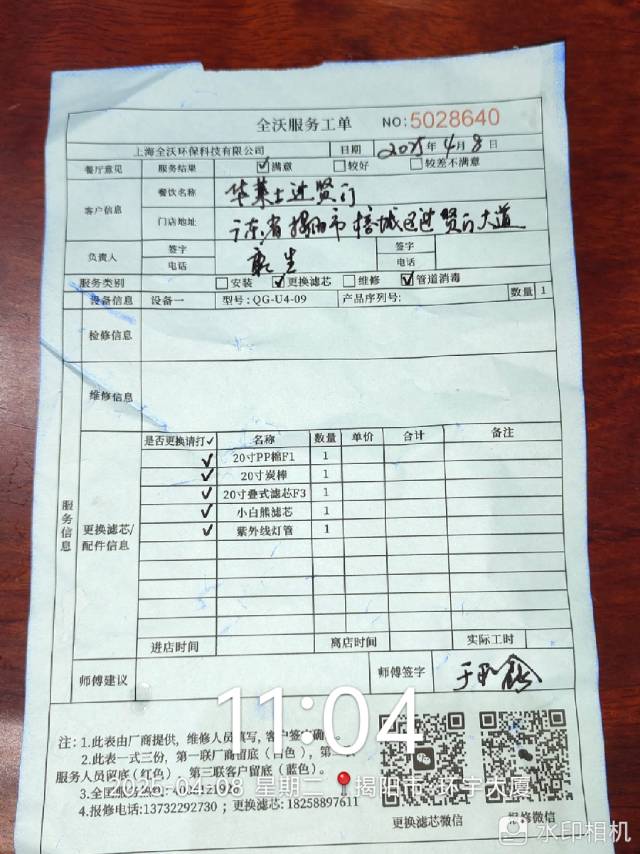 全沃服务工单 NO:5028640
上海全沃环保科技有限公司 日期 2025年4月8日
餐厅意见 服务结果 ☑满意 □较好 □较差不满意
客户信息 餐饮名称 华莱士进贤门
门店地址 广东省揭阳市榕城区进贤门大道
负责人 签字 签字
电话 电话
服务类别 □安装 ☑更换滤芯 □维修 ☑管道消毒
设备信息 设备一 型号:QG-U4-09 产品序列号: 数量 1
检修信息
维修信息
服务信息
更换滤芯/配件信息
是否更换请打✓ 名称 数量 单价 合计 备注
✓ 20寸PP棉F1 1
✓ 20寸炭棒 1
✓ 20寸叠式滤芯F3 1
✓ 小白熊滤芯 1
✓ 紫外线灯管 1
进店时间 离店时间 实际工时
师傅建议 师傅签字
11:04
注: 1.此表由厂商提供, 维修人员填写, 客户签字确
2.此表一式三份, 第一联厂商留底(白色), 第二联
服务人员留底(红色), 第三联客户留底(蓝色)。
3.全国服务热线:
2025-04-08 星期二 揭阳市·环宇大厦
4.报修电话:13732292730 ; 更换滤芯: 18258897611
更换滤芯微信 报修微信
水印相机